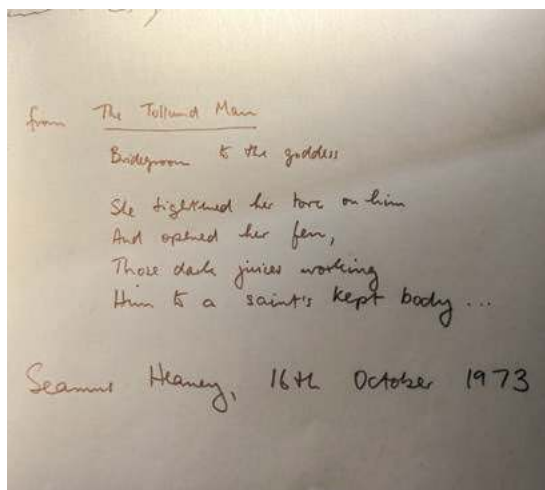 from The Tollund Man
Bridegroom to the goddess
She tightened her torc on him
And opened her fen,
Those dark juices working
Him to a saint's kept body ...
Seamus Heaney, 16th October 1973